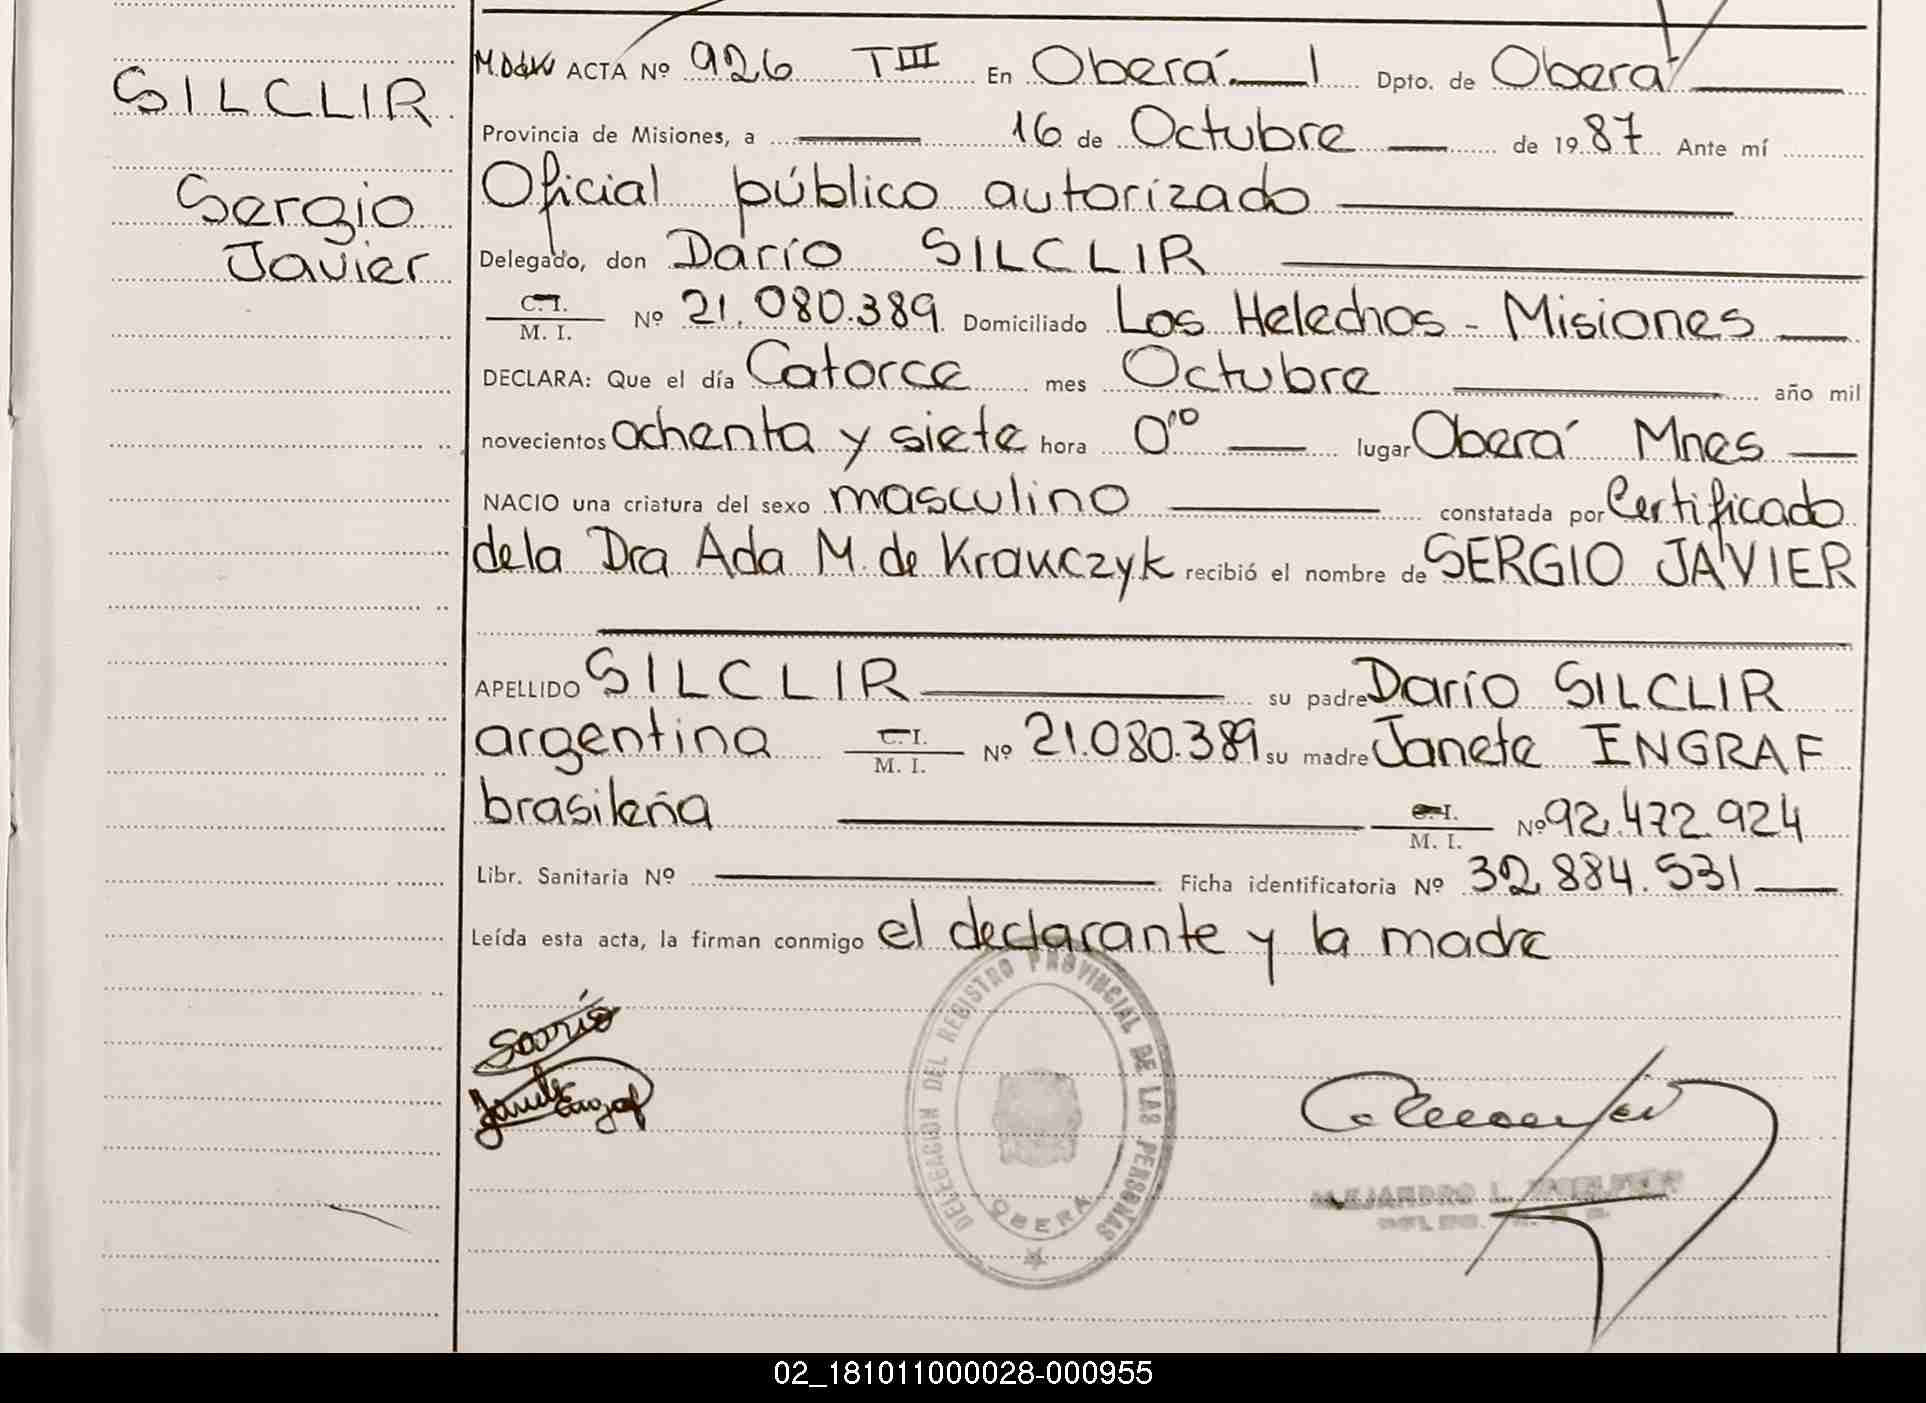 SILCLIR
Sergio
Javier
ACTA Nº 926 TIII En Oberá 1 Dpto. de Oberá
Provincia de Misiones, a 16 de Octubre de 1987 Ante mí
Oficial público autorizado
Delegado, don Darío SILCLIR
C.I. / M. I. Nº 21.080.389 Domiciliado Los Helechos - Misiones
DECLARA: Que el día Catorce mes Octubre año mil
novecientos ochenta y siete hora 0¹⁰ lugar Oberá Mnes
NACIO una criatura del sexo masculino constatada por Certificado
de la Dra Ada M. de Krauczyk recibió el nombre de SERGIO JAVIER
APELLIDO SILCLIR su padre Darío SILCLIR
argentina C.I. / M. I. Nº 21.080.389 su madre Janete ENGRAF
brasileña C.I. / M. I. Nº 92.472.924
Libr. Sanitaria Nº Ficha identificatoria Nº 32.884.531
Leída esta acta, la firman conmigo el declarante y la madre
DELEGACION DEL REGISTRO PROVINCIAL DE LAS PERSONAS
OBERA
ALEJANDRO L.
02_181011000028-000955